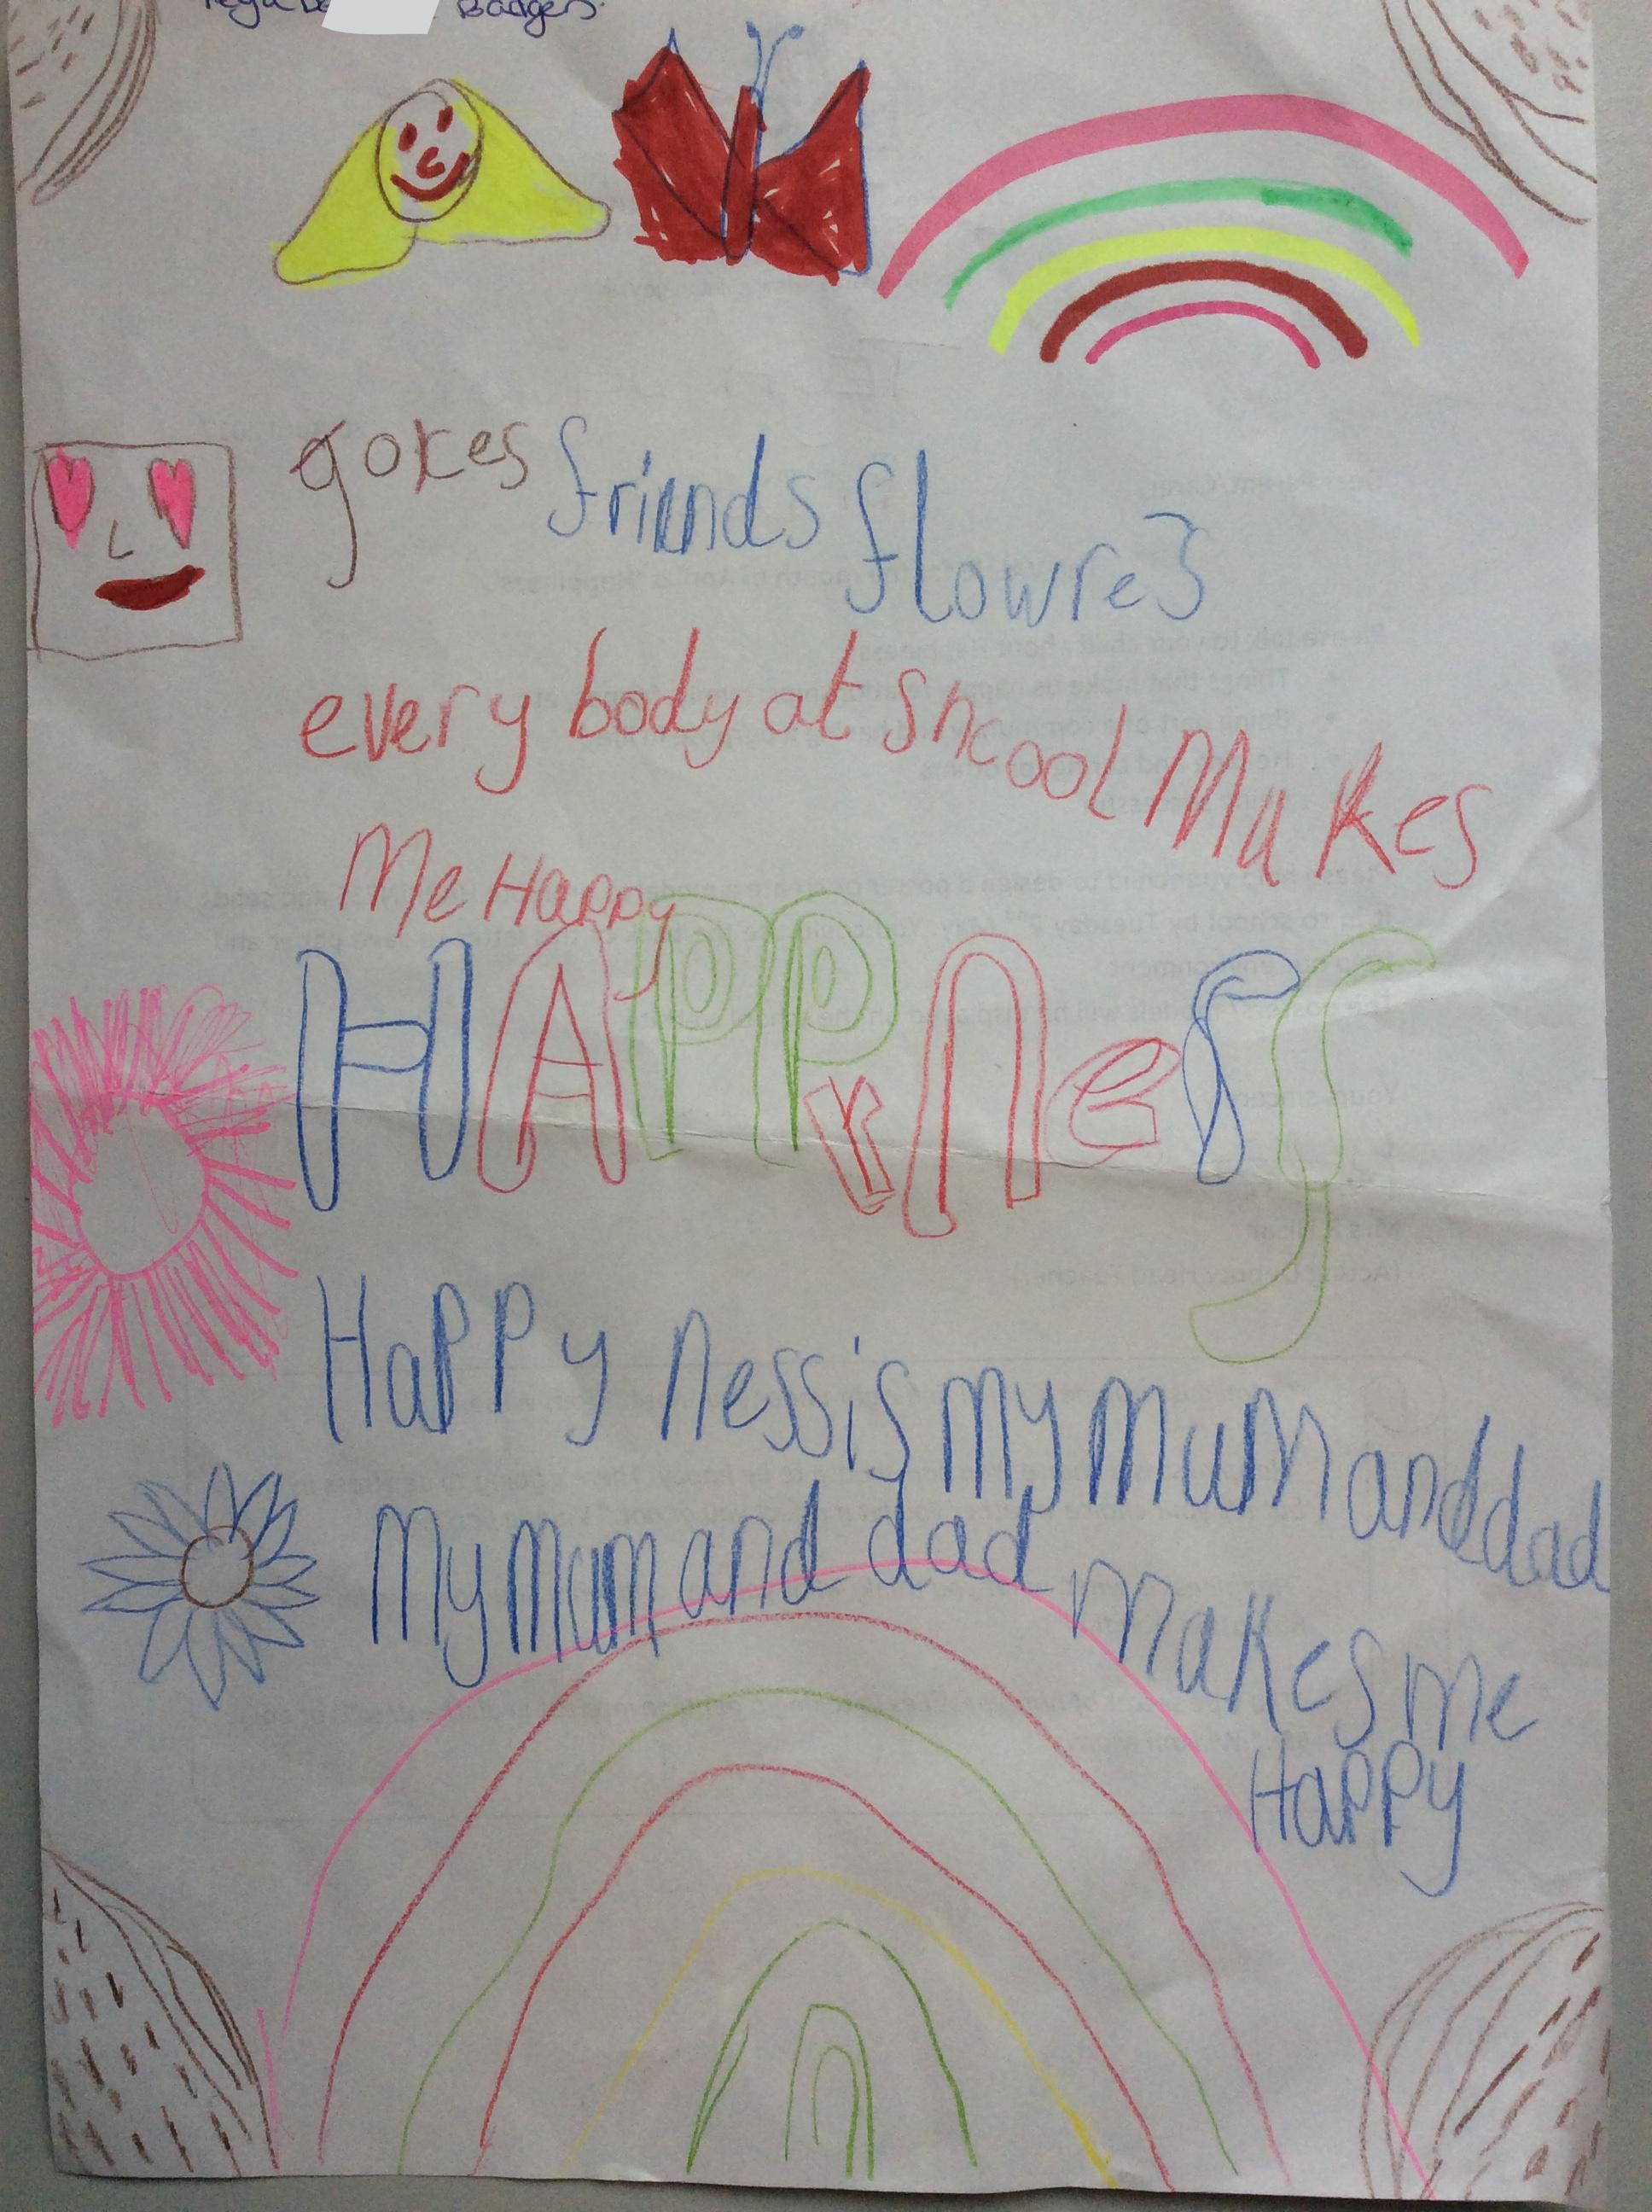 Badgers
gokes friends flowres
every body at shcool makes
Me Happy
HAPPYNESS
Happy ness is my mum and dad
My mum and dad makes me
Happy